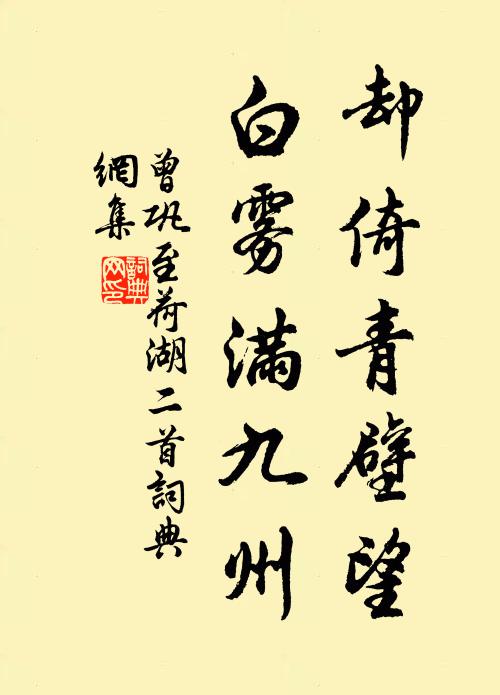 却倚青壁望
白雾滿九州
曾巩至荷湖二首詞典
網集
詞典
网印